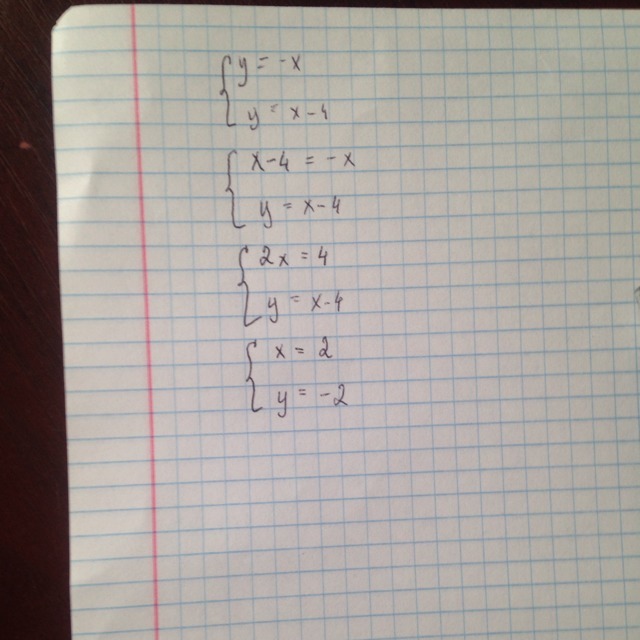 y = -x
y = x-4
x-4 = -x
y = x-4
2x = 4
y = x-4
x = 2
y = -2